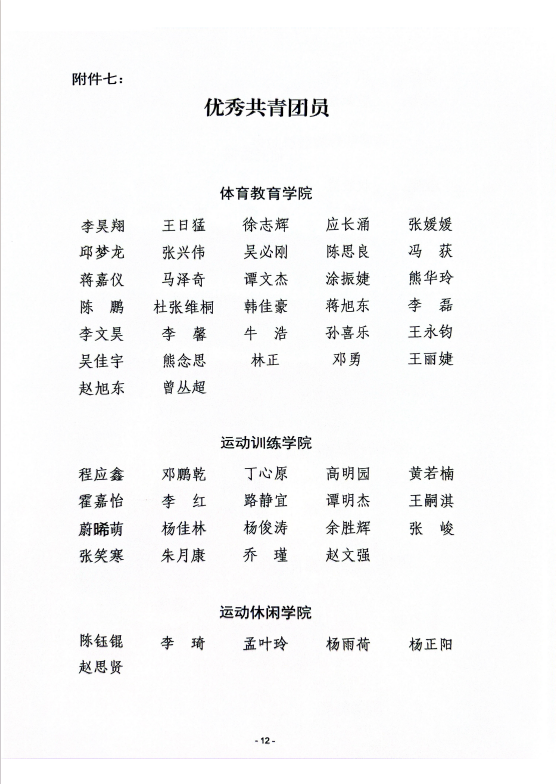 附件七：
优秀共青团员
体育教育学院
李昊翔 王日猛 徐志辉 应长涌 张媛媛
邱梦龙 张兴伟 吴必刚 陈思良 冯 获
蒋嘉仪 马泽奇 谭文杰 涂振婕 熊华玲
陈 鹏 杜张维桐 韩佳豪 蒋旭东 李 磊
李文昊 李 馨 牛 浩 孙喜乐 王永钧
吴佳宇 熊念思 林正 邓勇 王丽婕
赵旭东 曾丛超
运动训练学院
程应鑫 邓鹏乾 丁心原 高明园 黄若楠
霍嘉怡 李 红 路静宜 谭明杰 王嗣淇
蔚晞萌 杨佳林 杨俊涛 余胜辉 张 峻
张笑寒 朱月康 乔 瑾 赵文强
运动休闲学院
陈钰锟 李 琦 孟叶玲 杨雨荷 杨正阳
赵思贤
- 12 -